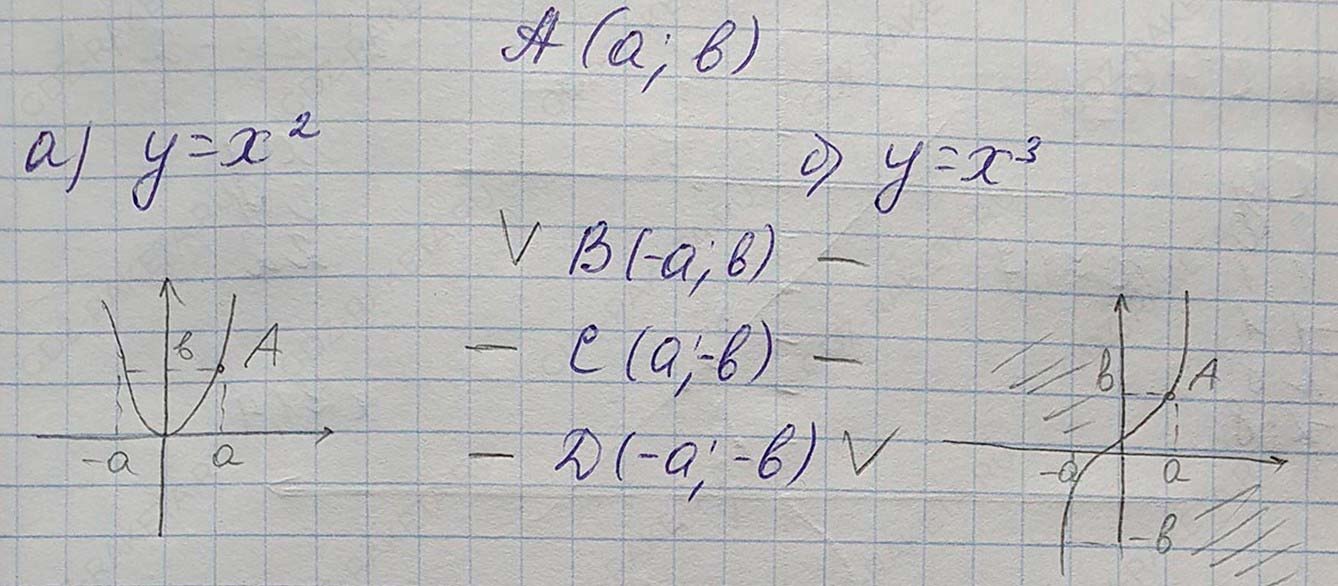 A (a; в)
а) y=x²
б) y=x³
V B(-a; в) –
– C (a; -в) –
– D(-a; -в) V
в A
-a a
в A
-a a
-в